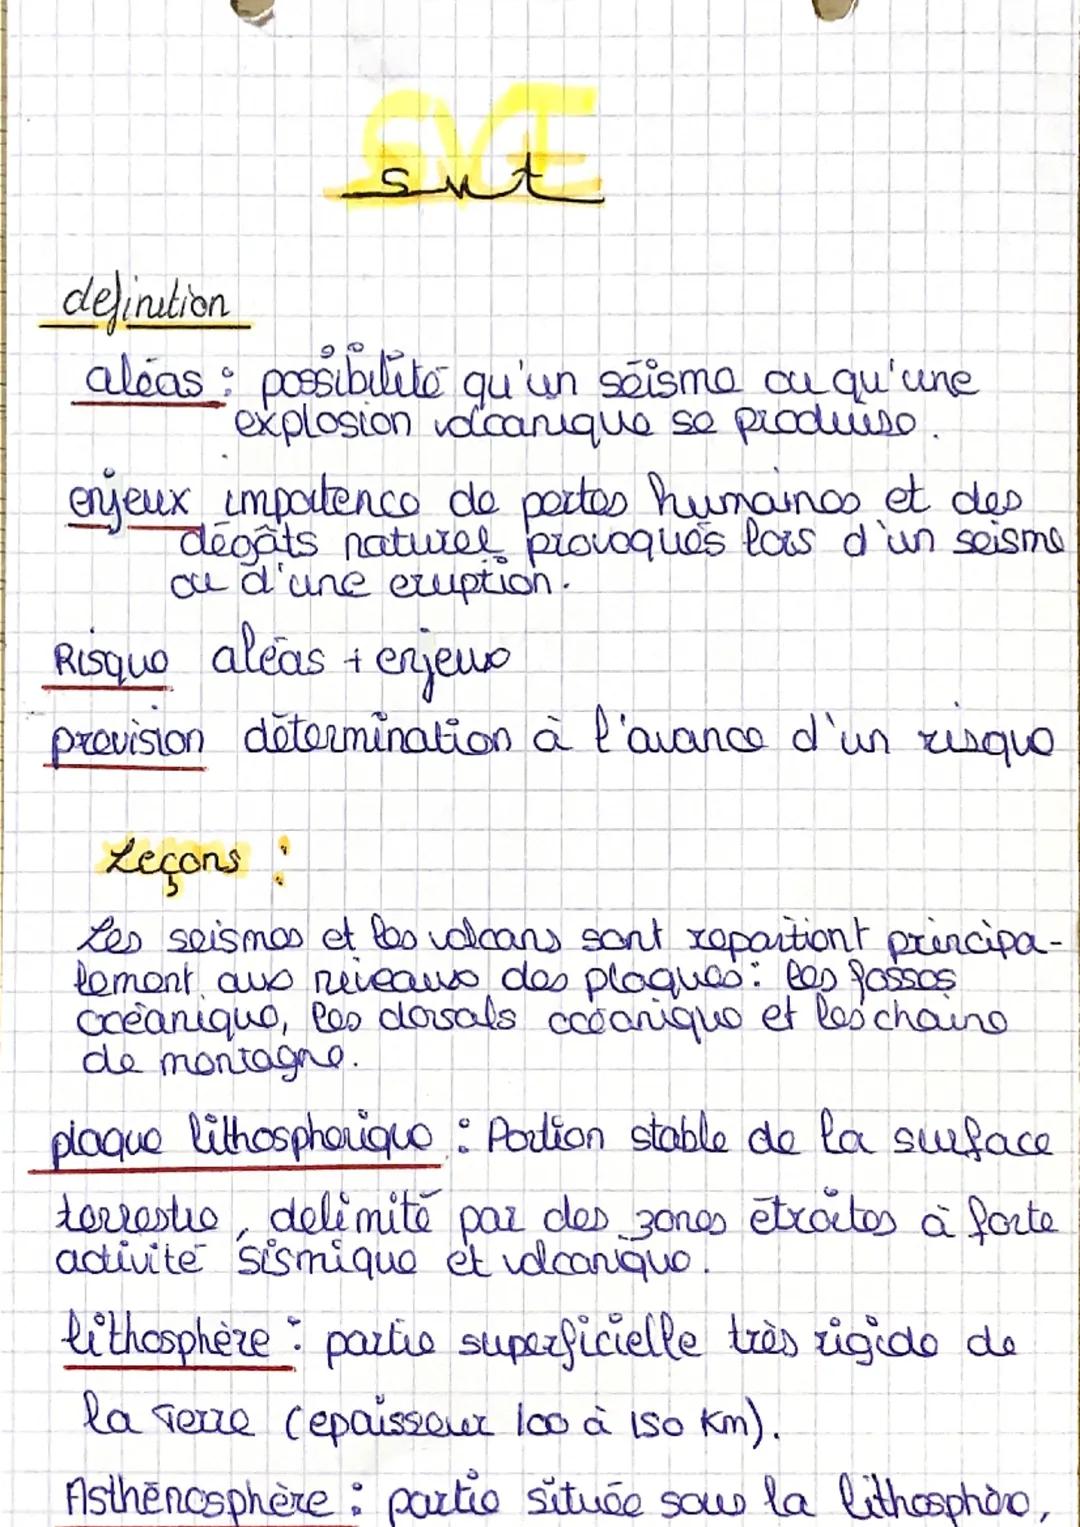 SVT
svt
definition
aléas : possibilité qu'un séisme ou qu'une
explosion volcanique se produise.
enjeux importence de pertes humaines et des
dégâts naturel provoqués lors d'un seisme
ou d'une eruption.
Risque aléas + enjeux
prevision détermination à l'avance d'un risque
Leçons :
Les seismes et les volcans sont repartiont principa-
lement aux niveaux des plaques : les fosses
océanique, les dorsals océanique et les chaine
de montagne.
plaque lithospherique : Portion stable de la surface
terrestre, delimité par des zones étroites à forte
activité sismique et volcanique.
lithosphère : partie superficielle très rigide de
la Terre (epaisseur 100 à 150 Km).
Asthénosphère : partie située sous la lithosphère,